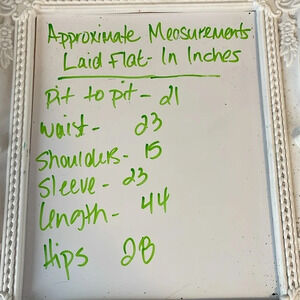 Approximate Measurements
Laid Flat - In Inches
pit to pit - 21
waist - 23
Shoulders - 15
Sleeve - 23
Length - 44
Hips 28